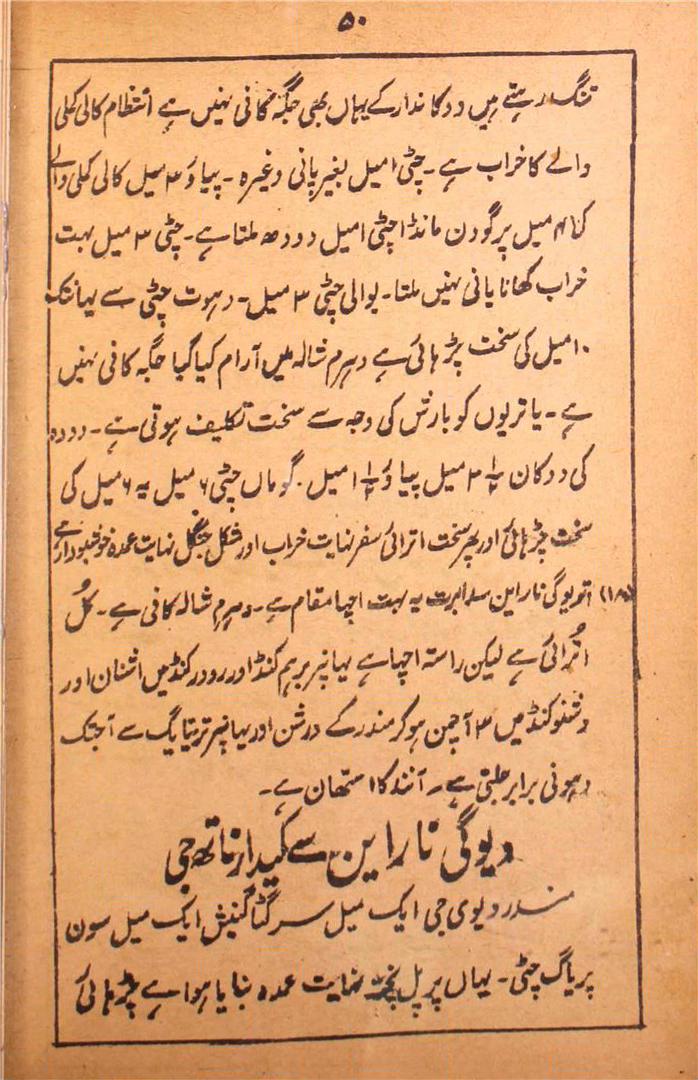 ۵۰
تنگ رہتے ہیں دوکاندار کے یہاں بھی جگہ کافی نہیں ہے انتظام کالی کملی
والے کا خراب ہے۔ چٹی ۱ میل بغیر پانی وغیرہ۔ پیاؤ ۳ میل کالی کملی والے
کا ۴ میل پر گودن مانڈا چٹی ۱ میل دودھ ملتا ہے۔ چٹی ۳ میل بہت
خراب کھانا پانی نہیں ملتا۔ پوالی چٹی ۳ میل۔ دہوت چٹی سے یہانتک
۱۰ میل کی سخت چڑہائی ہے دہرم شالہ میں آرام کیا گیا جگہ کافی نہیں
ہے۔ یاتریوں کو بارش کی وجہ سے سخت تکلیف ہوتی ہے۔ دودہ
کی دوکان ۲½ میل پیاؤ ۱½ میل۔ گوماں چٹی ۶ میل یہ ۶ میل کی
سخت چڑہائی اور پھر سخت اترائی سفر نہایت خراب اور مشکل جنگل نہایت عمدہ خوشبودار ہے
(۱۸) اتریوگی ناراین سدابرت یہ بہت اچہا مقام ہے۔ دہرم شالہ کافی ہے۔ کل
اترائی ہے لیکن راستہ اچہا ہے یہانپر برہم کنڈ اور رودر کنڈ میں اشنان اور
وشنو کنڈ میں ۳ آچمن ہو کر مندر کے درشن اور یہانپر تریتا یگ سے آجتک
دہونی برابر جلتی ہے۔ آنند کا استھان ہے۔
دیوگی ناراین سے کیدارناتھ جی
مندر دیوی جی ایک میل سر کٹا گنیش ایک میل سون
پریاگ چٹی۔ یہاں پر پل پختہ نہایت عمدہ بنایا ہوا ہے چڑہائی